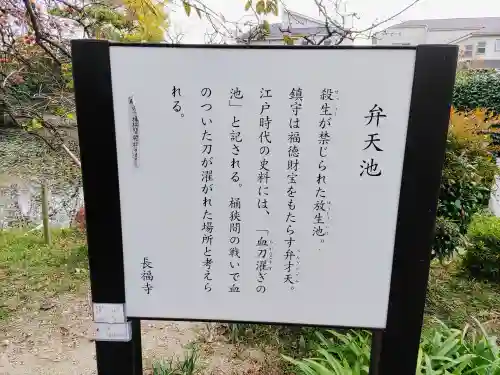 弁天池
殺生が禁じられた放生池。
鎮守は福徳財宝をもたらす弁才天。
江戸時代の史料には、「血刀濯ぎの
池」と記される。桶狭間の戦いで血
のついた刀が濯がれた場所と考えら
れる。
長福寺